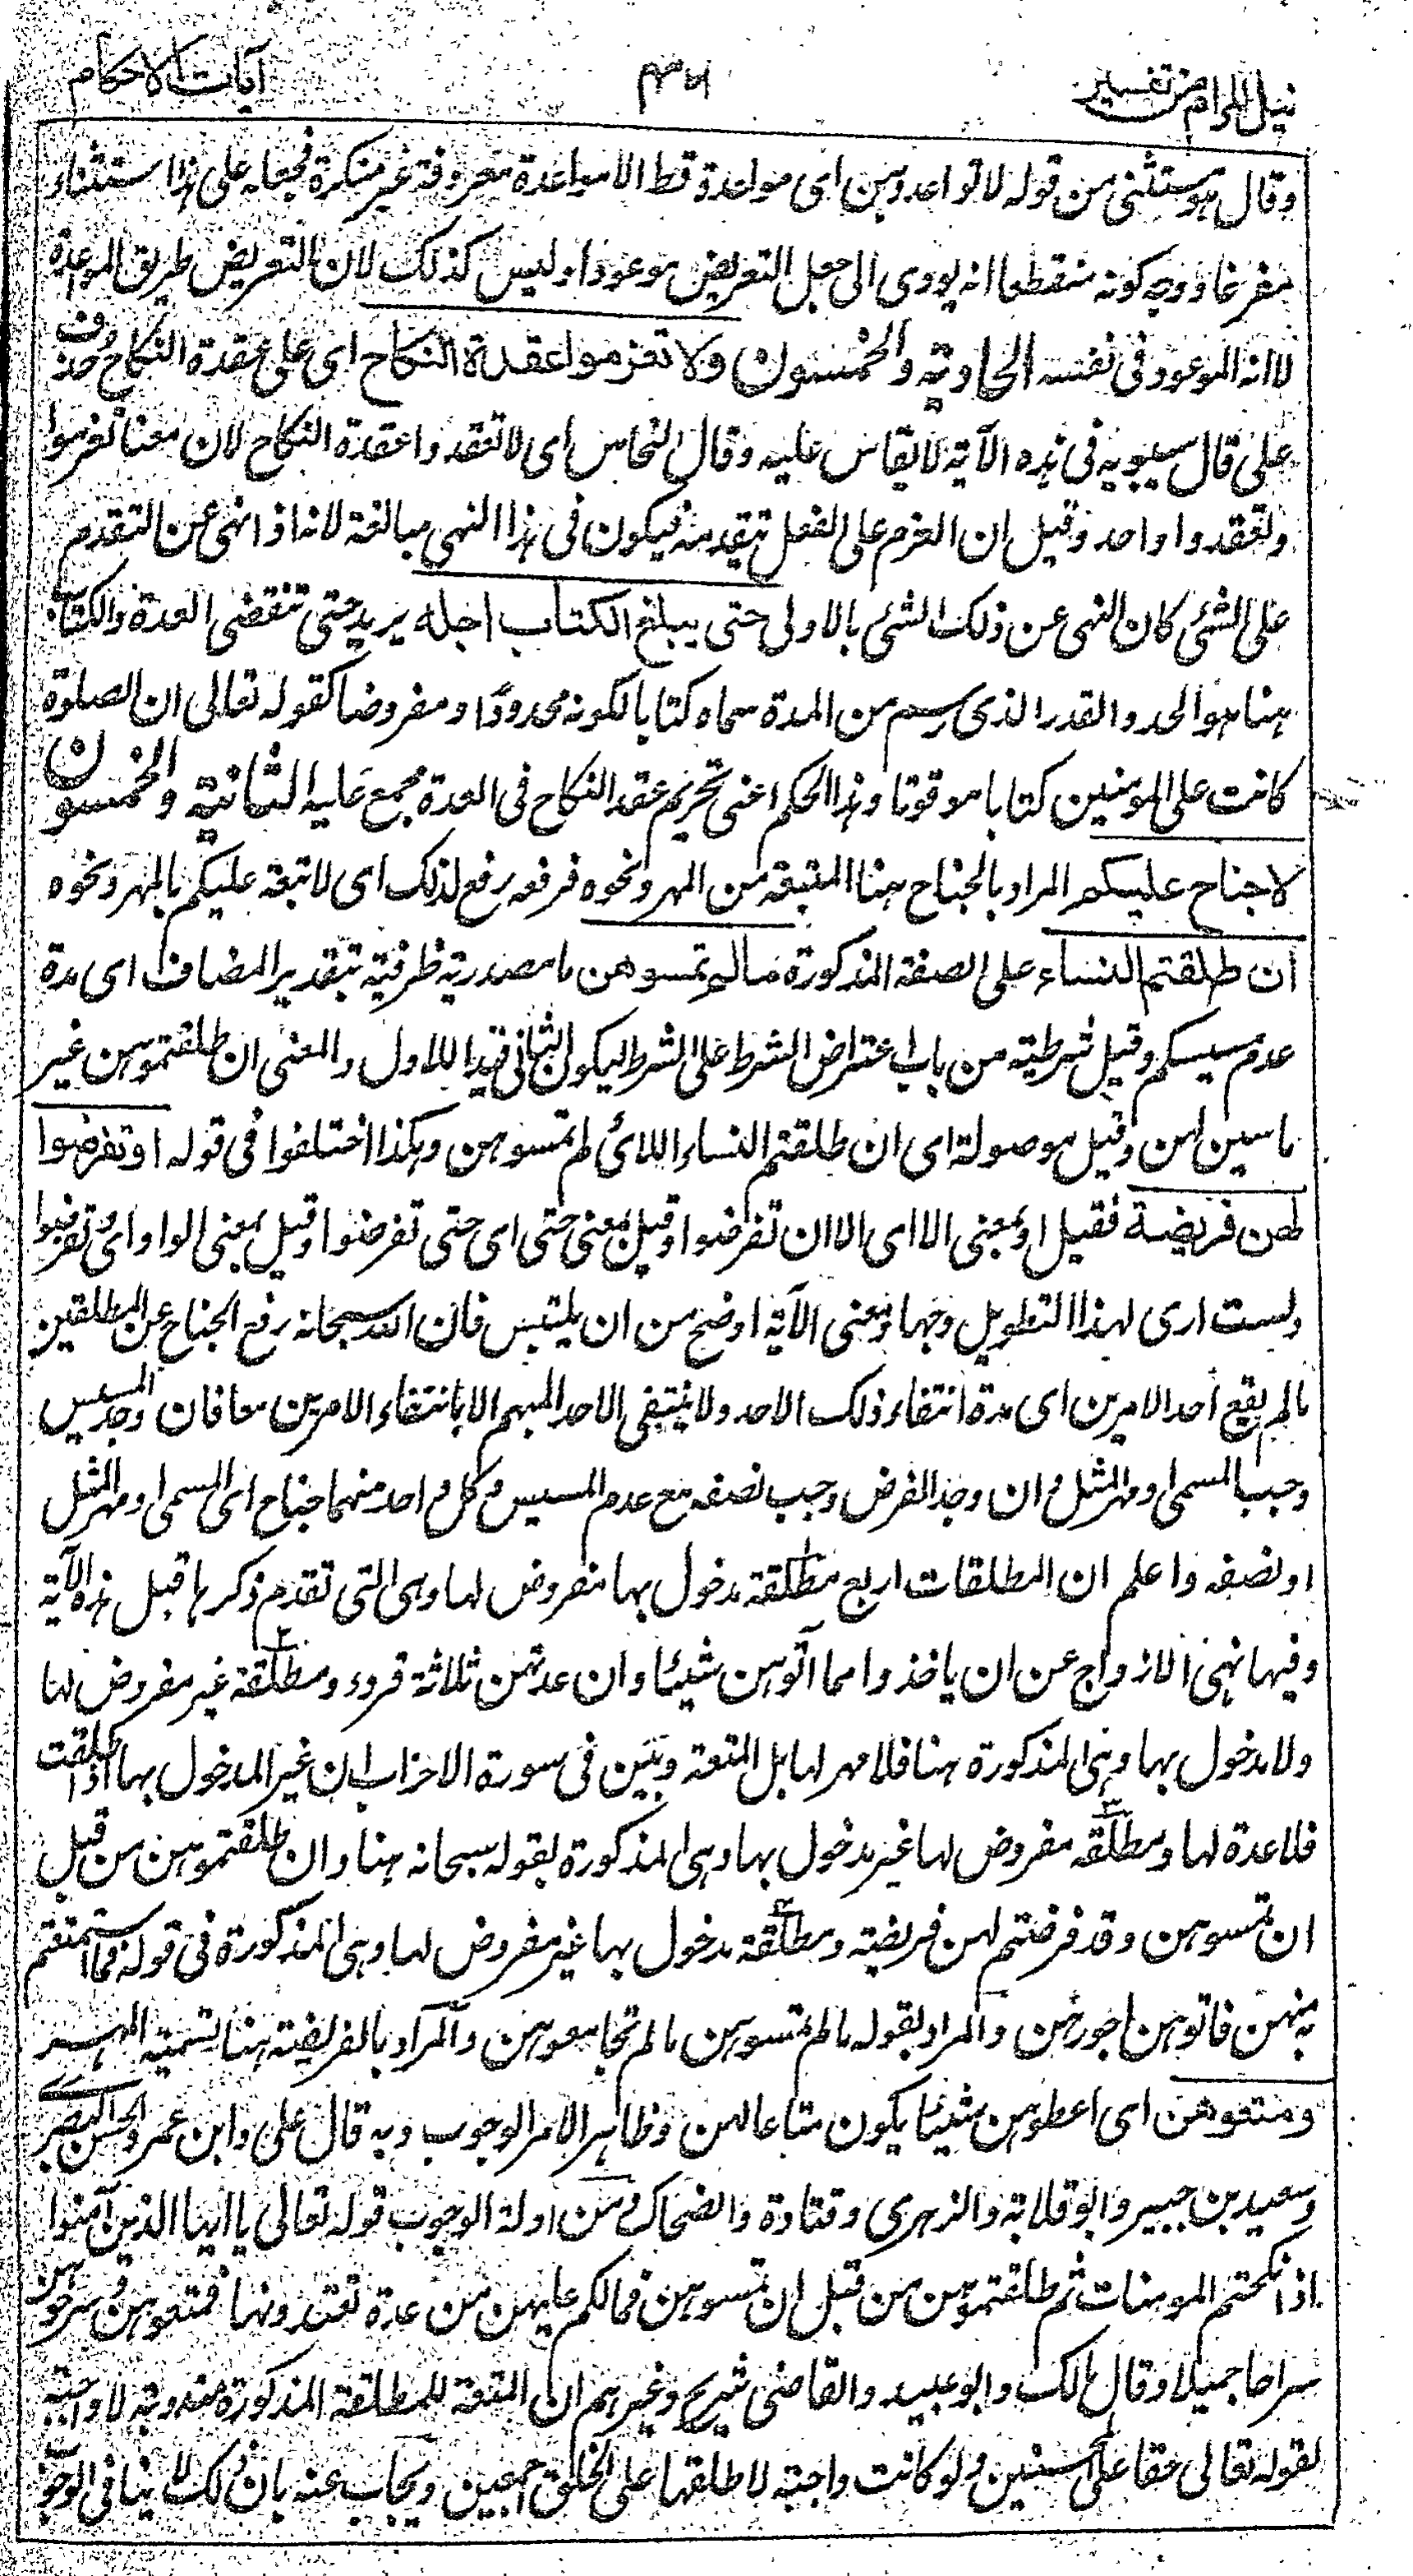 نيل المرام من تفسير
آيات الاحكام
وقال هو مستثنى من قوله لا تواعدوهن اى مواعدة قط الا مواعدة معروفة غير منكرة فجعله على هذا استثناء
مفرغا ووجه كونه منقطعا انه يودى الى جعل التعريض موعودا وليس كذلك لان التعريض طريق المواعدة
لا انه الموعود فى نفسه الحاوية والخمسون ولا تعزموا عقدة النكاح اى على عقدة النكاح حذف
على قال سيبويه فى هذه الآية لا يقاس عليه وقال النحاس اى لا تعقدوا عقدة النكاح لان معنا تعزموا
وتعقدوا واحد وقيل ان العزم على الفعل يتقدمه فيكون فى هذا النهى مبالغة لانه اذا نهى عن المتقدم
على الشئ كان النهى عن ذلك الشئ بالاولى حتى يبلغ الكتاب اجله يريد حتى تنقضى العدة والكتاب
هنا هو الحد والقدر الذى رسم من المدة سماه كتابا لكونه محدودا ومفروضا كقوله تعالى ان الصلوة
كانت على المومنين كتابا موقوتا وهذا الحكم اعنى تحريم عقد النكاح فى العدة مجمع عليه الثانية والخمسون
لا جناح عليكم المراد بالجناح هنا التبعة من المهر ونحوه فرفعه رفع لذلك اى لا تبعة عليكم بالمهر ونحوه
ان طلقتم النساء على الصفة المذكورة مالم تمسوهن ما مصدرية ظرفية بتقدير المضاف اى مدة
عدم مسيسكم وقيل شرطية من باب اعتراض الشرط على الشرط ليكون الثانى قيدا للاول والمعنى ان طلقتموهن غير
ماسين لهن وقيل موصولة اى ان طلقتم النساء اللائى لم تمسوهن وهكذا اختلفوا فى قوله او تفرضوا
لهن فريضة فقيل او بمعنى الا اى الا ان تفرضوا وقيل بمعنى حتى اى حتى تفرضوا وقيل بمعنى الواو اى وتفرضوا
ولست ارى لهذا التطويل وجها ومعنى الآية اوضح من ان يلتبس فان الله سبحانه رفع الجناح عن المطلقين
مالم يقع احد الامرين اى مدة انتفاء ذلك الاحد ولا ينتفى الاحد المبهم الا بانتفاء الامرين معا فان وجد المسيس
وجب المسمى او مهر المثل وان وجد الفرض وجب نصفه مع عدم المسيس وكل واحد منهما جناح اى المسمى او مهر المثل
او نصفه واعلم ان المطلقات اربع مطلقة مدخول بها مفروض لها وهى التى تقدم ذكرها قبل هذه الآية
وفيها نهى الازواج عن ان ياخذوا مما آتوهن شيئا وان عدتهن ثلاثة قروء ومطلقة غير مفروض لها
ولا مدخول بها وهى المذكورة هنا فلا مهر لها بل المتعة وبين فى سورة الاحزاب ان غير المدخول بها اذا طلقت
فلا عدة لها ومطلقة مفروض لها غير مدخول بها وهى المذكورة بقوله سبحانه هنا وان طلقتموهن من قبل
ان تمسوهن وقد فرضتم لهن فريضة ومطلقة مدخول بها غير مفروض لها وهى المذكورة فى قوله فما استمتعتم
به منهن فاتوهن اجورهن والمراد بقوله مالم تمسوهن مالم تجامعوهن والمراد بالفريضة هنا تسمية المهر
ومتعوهن اى اعطوهن شيئا يكون متاعا لهن وظاهر الامر الوجوب وبه قال على وابن عمر والحسن البصرى
وسعيد بن جبير وابو قلابة والزهرى وقتادة والضحاك ومن ادلة الوجوب قوله تعالى يا ايها الذين آمنوا
اذا نكحتم المومنات ثم طلقتموهن من قبل ان تمسوهن فمالكم عليهن من عدة تعتدونها فمتعوهن وسرحوهن
سراحا جميلا وقال مالك وابو عبيد والقاضى شريح وغيرهم ان المتعة للمطلقة المذكورة مندوبة لا واجبة
لقوله تعالى حقا على المحسنين ولو كانت واجبة لاطلقها على الخلق اجمعين ويجاب عنه بان ذلك لا ينافى الوجوب